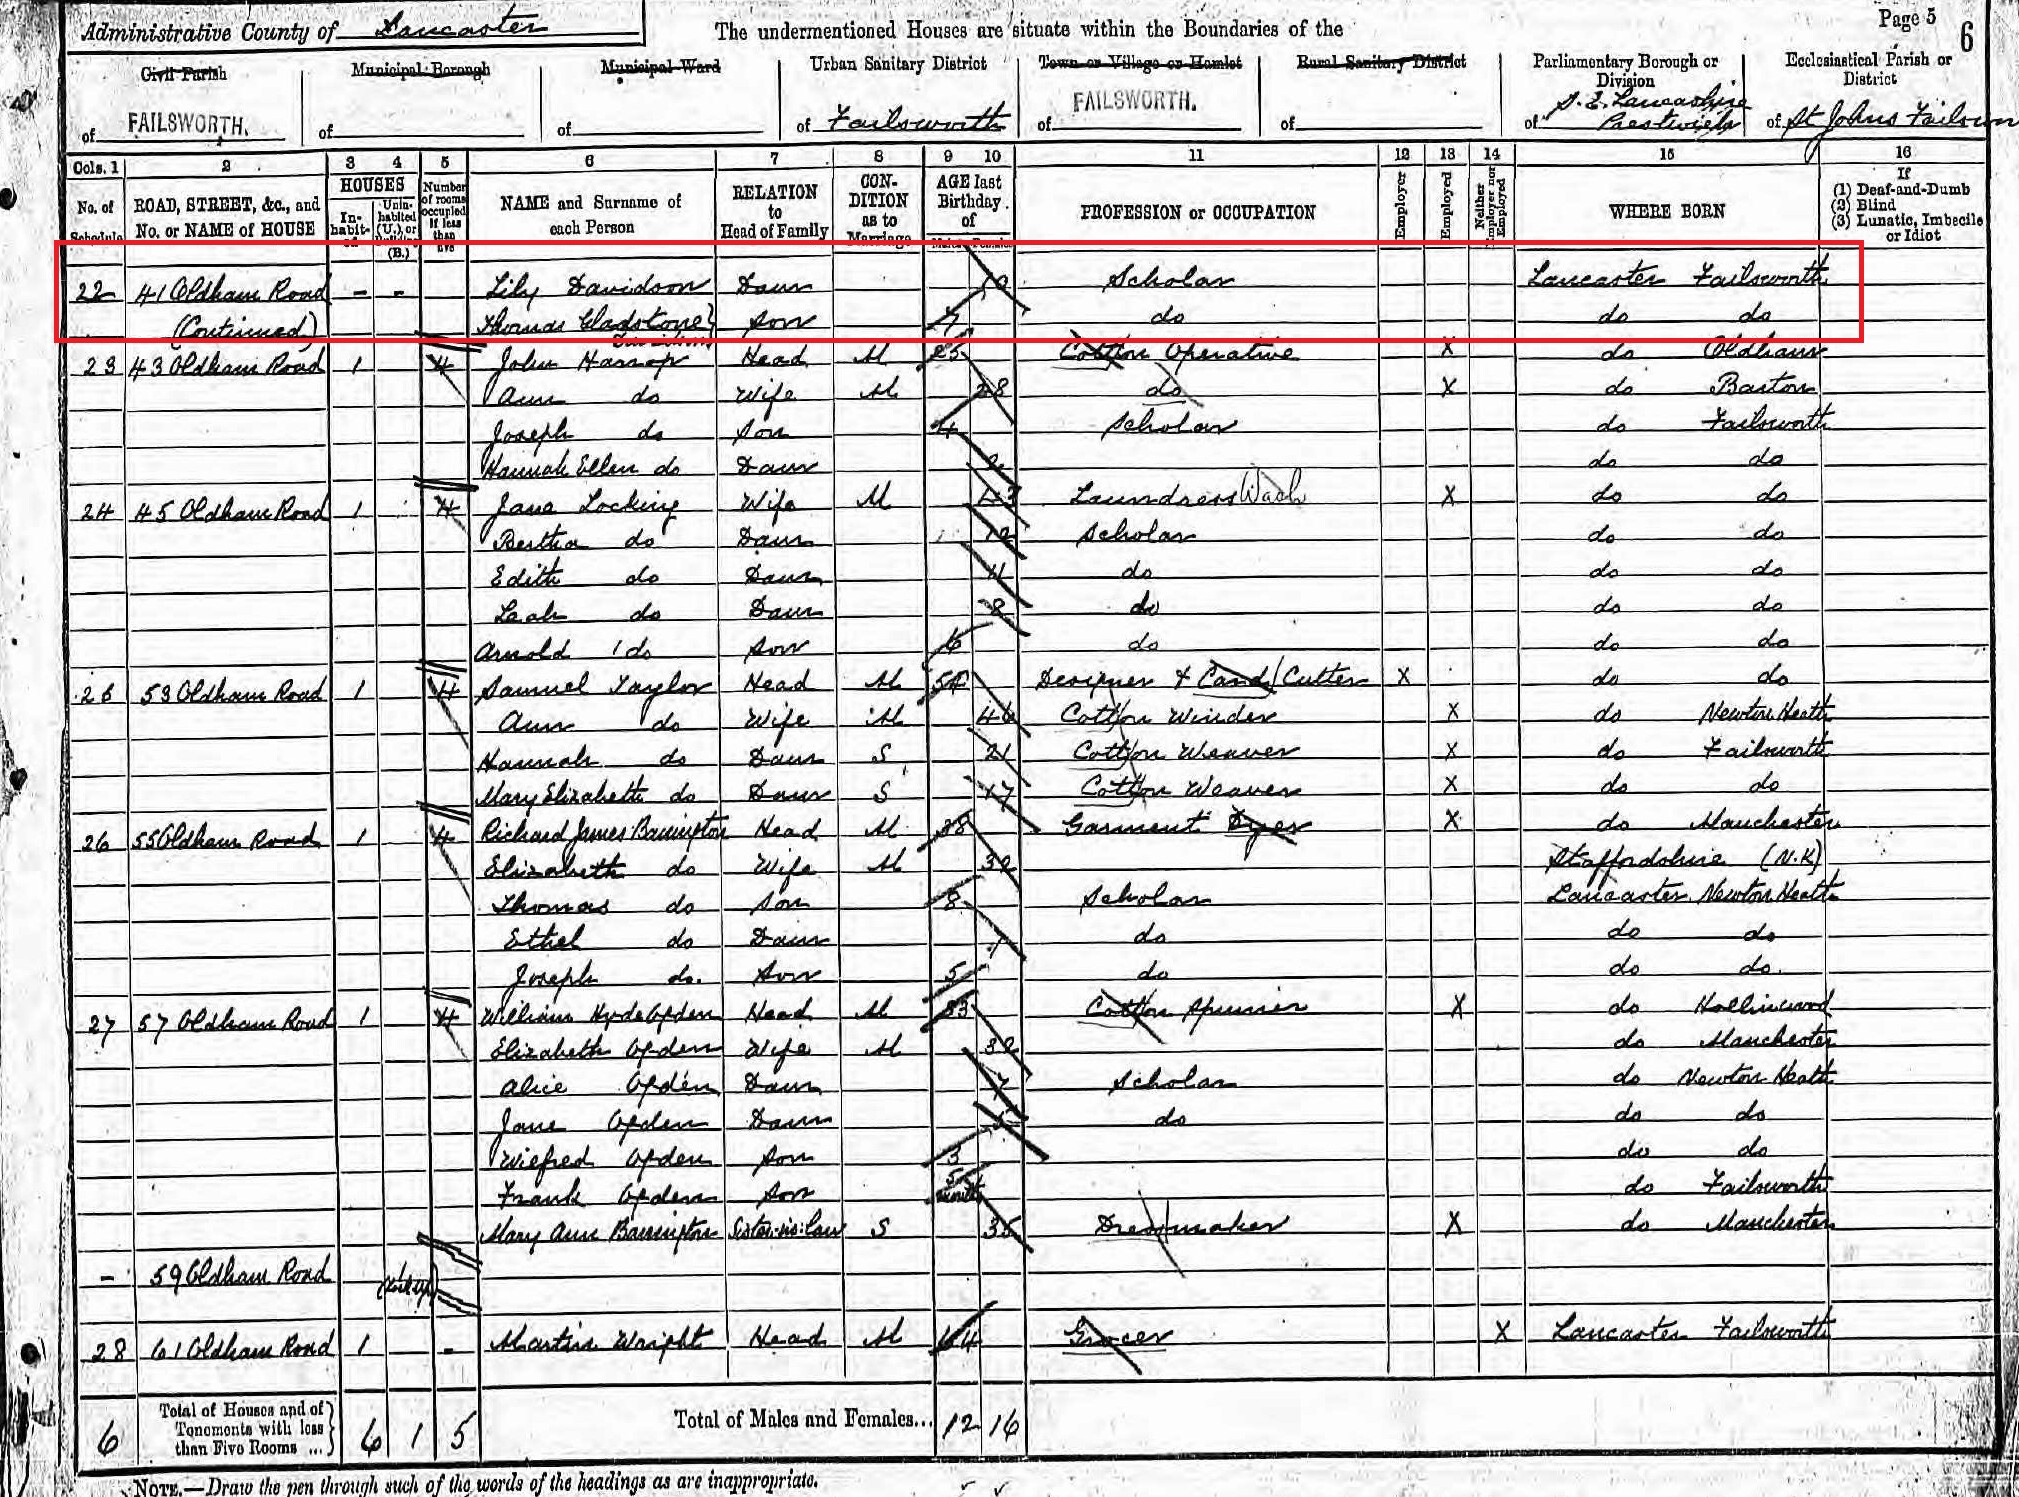 Page 5
6
Administrative County of Lancaster
The undermentioned Houses are situate within the Boundaries of the
Civil Parish of FAILSWORTH.
Municipal Borough of
Municipal Ward of
Urban Sanitary District of Failsworth
Town or Village or Hamlet of FAILSWORTH.
Rural Sanitary District of
Parliamentary Borough or Division of S. E. Lancashire Prestwich
Ecclesiastical Parish or District of St Johns
Cols. 1 2 3 4 5 6 7 8 9 10 11 12 13 14 15 16
No. of Schedule
ROAD, STREET, &c., and No. or NAME of HOUSE
HOUSES
Inhabited
Uninhabited (U.), or Building (B.)
Number of rooms occupied if less than five
NAME and Surname of each Person
RELATION to Head of Family
CONDITION as to Marriage
AGE last Birthday of
Males Females
PROFESSION or OCCUPATION
Employer
Employed
Neither Employer nor Employed
WHERE BORN
If
(1) Deaf-and-Dumb
(2) Blind
(3) Lunatic, Imbecile or Idiot
22 41 Oldham Road - - Lily Davidson Daur Scholar Lancaster Failsworth
(Continued) Thomas Gladstone} Davidson Son 7 do do do
23 43 Oldham Road 1 4 John Harrop Head M 25 Cotton Operative X do Oldham
Ann do Wife M 28 do X do Barton
Joseph do Son 4 Scholar do Failsworth
Hannah Ellen do Daur 2 do do
24 45 Oldham Road 1 4 Jane Locking Wife M 43 Laundress Wash X do do
Bertha do Daur 12 Scholar do do
Edith do Daur 11 do do do
Leah do Daur 8 do do do
Arnold do Son 6 do do do
25 53 Oldham Road 1 4 Samuel Taylor Head M 54 Designer & Card Cutter X do do
Ann do Wife M 46 Cotton Winder X do Newton Heath
Hannah do Daur S 21 Cotton Weaver X do Failsworth
Mary Elizabeth do Daur S 17 Cotton Weaver X do do
26 55 Oldham Road 1 4 Richard James Barrington Head M 38 Garment Dyer X do Manchester
Elizabeth do Wife M Staffordshire (N.K)
Thomas do Son 8 Scholar Lancaster Newton Heath
Ethel do Daur 7 do do do
Joseph do. Son 5 do do do.
27 57 Oldham Road 1 4 William Hyde Ogden Head M 33 Cotton Spinner X do Hollinwood
Elizabeth Ogden Wife M 32 do Manchester
Alice Ogden Daur 7 Scholar do Newton Heath
Jane Ogden Daur 5 do do do
Wilfred Ogden Son 3 do do
Frank Ogden Son 5 months do Failsworth
Mary Ann Barrington Sister-in-law S 35 Dressmaker X do Manchester
- 59 Oldham Road 1
28 61 Oldham Road 1 - Martin Wright Head M 64 Grocer X Lancaster Failsworth
6 Total of Houses and of Tenements with less than Five Rooms ...} 6 1 5 Total of Males and Females... 12 16
NOTE.—Draw the pen through such of the words of the headings as are inappropriate.